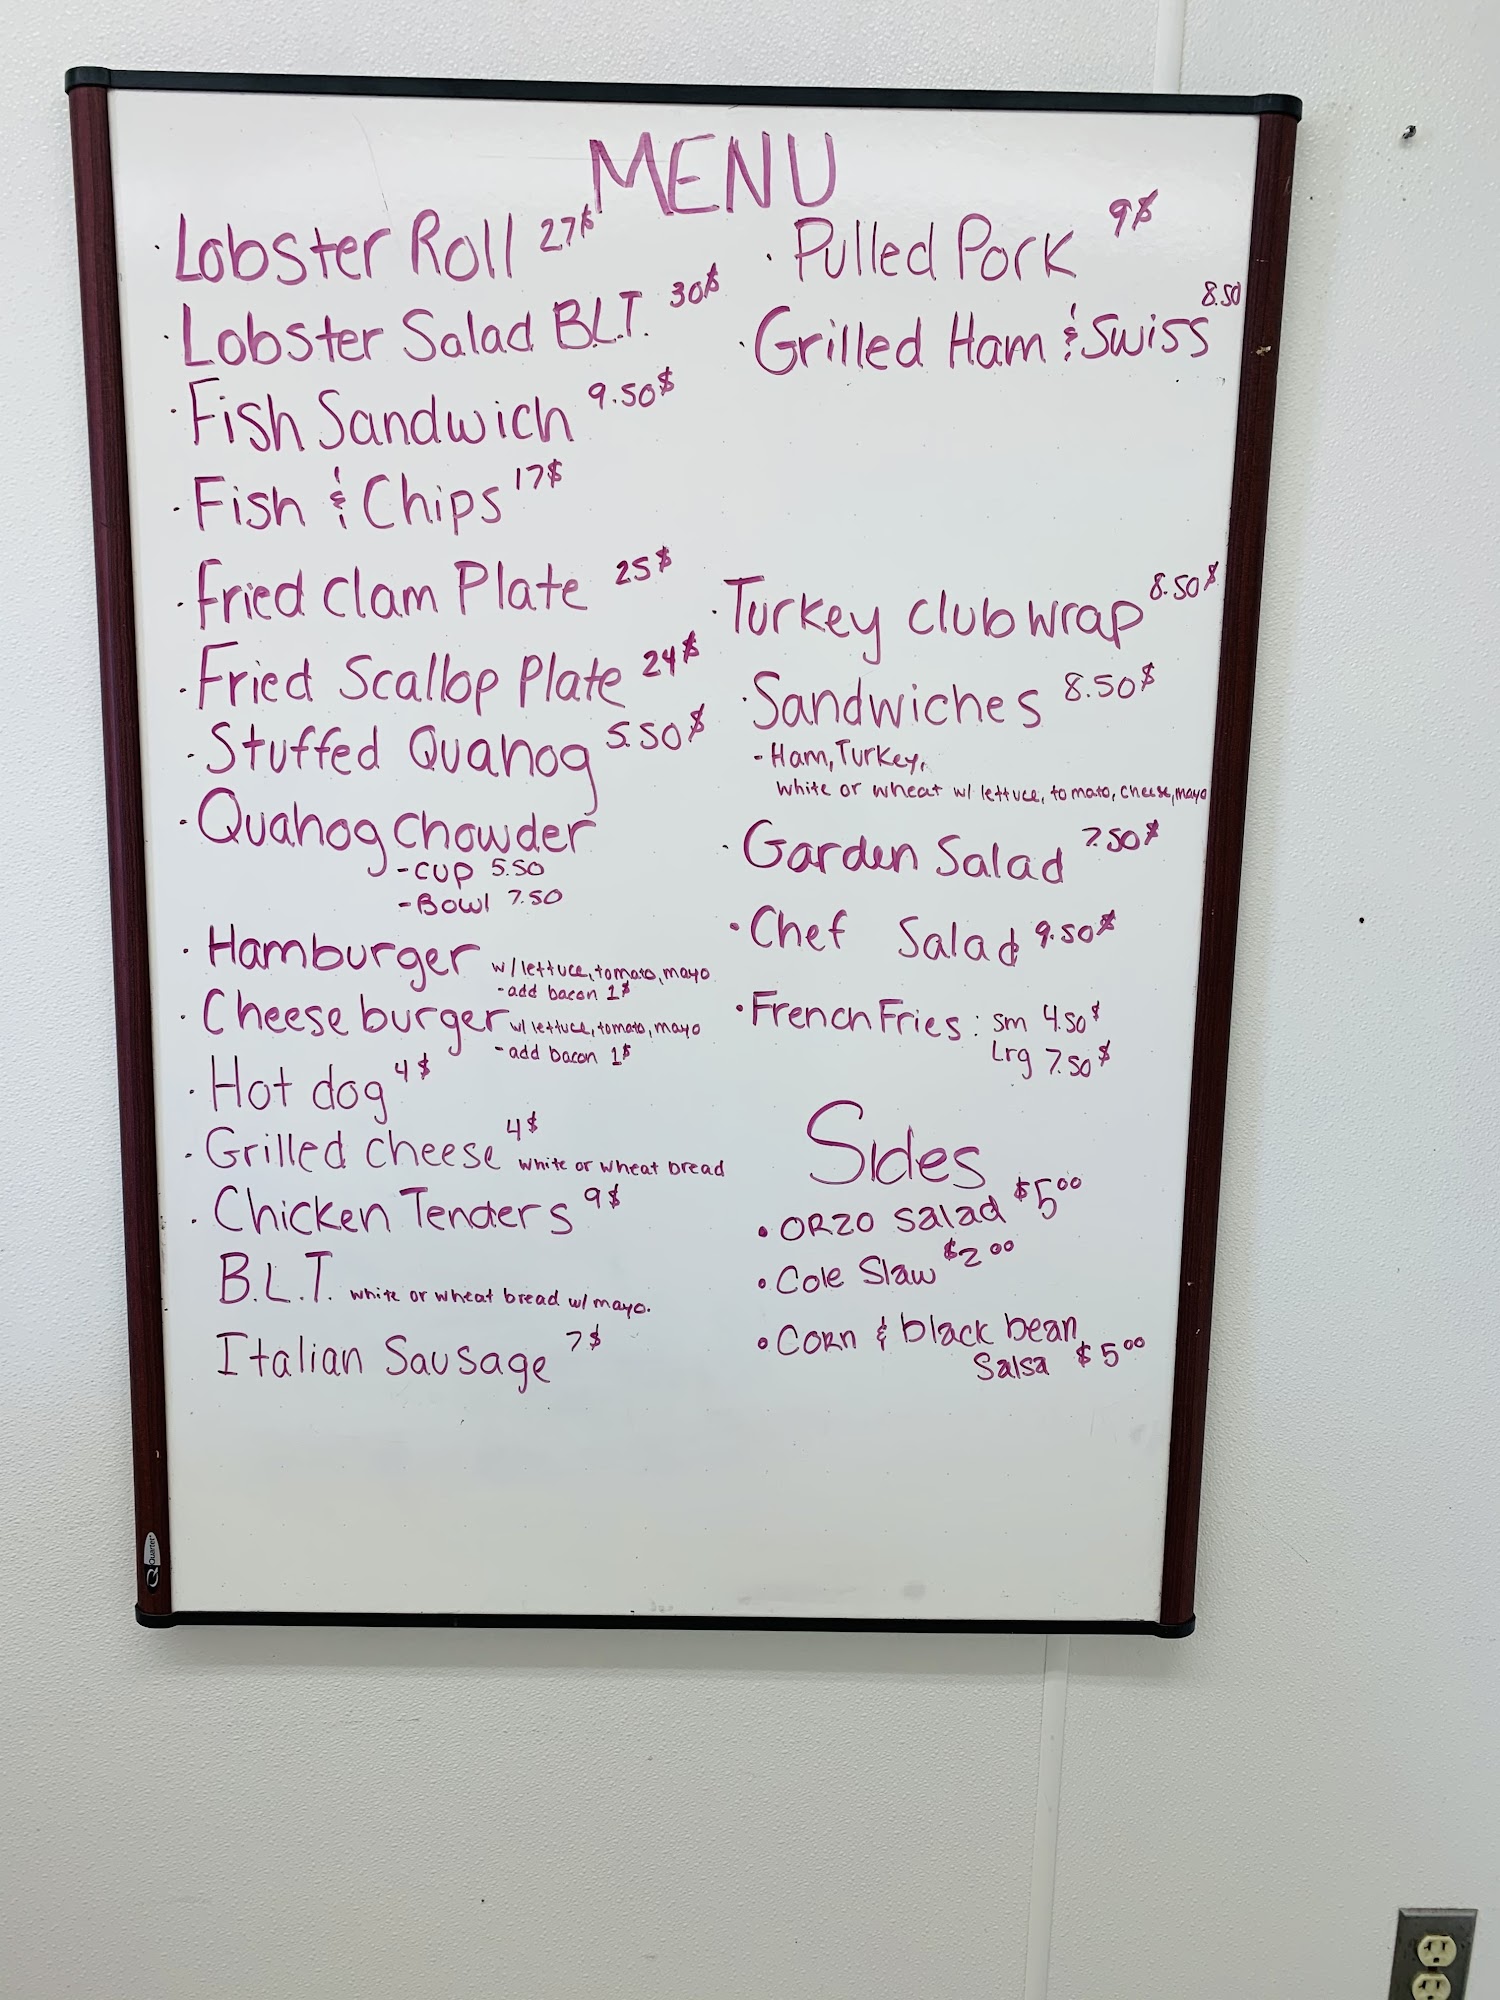 MENU
· Lobster Roll 27$
· Lobster Salad B.L.T. 30$
· Fish Sandwich 9.50$
· Fish & Chips 17$
· Fried Clam Plate 25$
· Fried Scallop Plate 24$
· Stuffed Quahog 5.50$
· Quahog Chowder
- Cup 5.50
- Bowl 7.50
· Hamburger w/ lettuce, tomato, mayo
- add bacon 1$
· Cheeseburger w/ lettuce, tomato, mayo
- add bacon 1$
· Hot dog 4$
· Grilled Cheese 4$ white or wheat bread
· Chicken Tenders 9$
B.L.T. white or wheat bread w/ mayo.
Italian Sausage 7$
· Pulled Pork 9$
· Grilled Ham & Swiss 8.50
· Turkey Club Wrap 8.50$
· Sandwiches 8.50$
- Ham, Turkey,
white or wheat w/ lettuce, tomato, cheese, mayo
· Garden Salad 7.50$
· Chef Salad 9.50$
· French Fries: sm 4.50$
Lrg 7.50$
Sides
• ORZO Salad $5.00
• Cole Slaw $2.00
• Corn & black bean
Salsa $5.00
Quartet